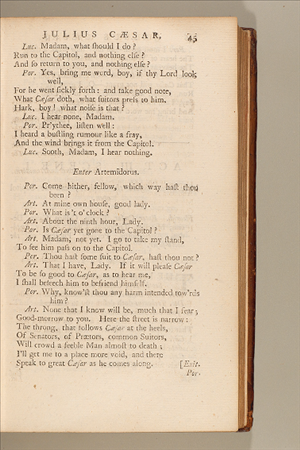 JULIUS CÆSAR. 45
Luc. Madam, what ſhould I do?
Run to the Capitol, and nothing elſe?
And ſo return to you, and nothing elſe?
Por. Yes, bring me word, boy, if thy Lord look
well,
For he went ſickly forth: and take good note,
What Cæſar doth, what ſuitors preſs to him.
Hark, boy! what noiſe is that?
Luc. I hear none, Madam.
Por. Pr'ythee, liſten well:
I heard a buſtling rumour like a fray,
And the wind brings it from the Capitol.
Luc. Sooth, Madam, I hear nothing.
Enter Artemidorus.
Por. Come hither, fellow, which way haſt thou
been?
Art. At mine own houſe, good lady.
Por. What is't o'clock?
Art. About the ninth hour, Lady.
Por. Is Cæſar yet gone to the Capitol?
Art. Madam, not yet. I go to take my ſtand,
To ſee him paſs on to the Capitol.
Por. Thou haſt ſome ſuit to Cæſar, haſt thou not?
Art. That I have, Lady. If it will pleaſe Cæſar
To be ſo good to Cæſar, as to hear me,
I ſhall beſeech him to befriend himſelf.
Por. Why, know'ſt thou any harm intended tow'rds
him?
Art. None that I know will be, much that I fear;
Good-morrow to you. Here the ſtreet is narrow:
The throng, that follows Cæſar at the heels,
Of Senators, of Prætors, common Suitors,
Will crowd a feeble Man almoſt to death;
I'll get me to a place more void, and there
Speak to great Cæſar as he comes along. [Exit.
Por.